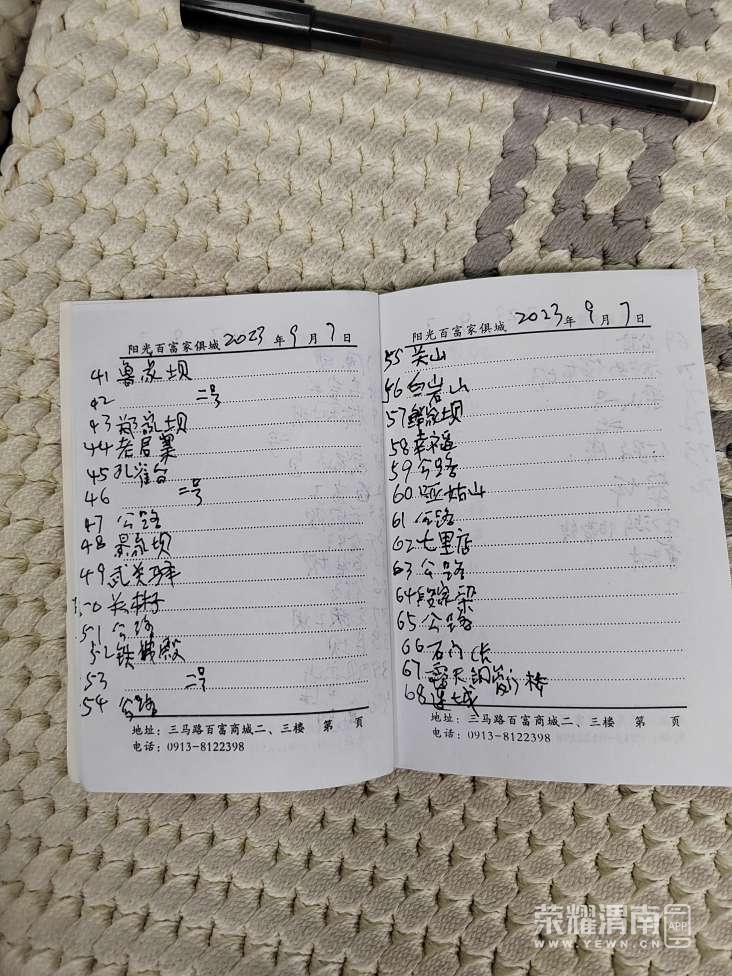 阳光百富家俱城 2023 年 9 月 7 日
41 鲁家坝
42 二号
43 郑家坝
44 老君巢
45 孔雀台
46 二号
47 公路
48 吴家坝
49 武关驿
50 关林子
51 公路
52 铁佛殿
53 二号
54 公路
地址：三马路百富商城二、三楼 第 页
电话：0913-8122398
阳光百富家俱城 2023 年 9 月 7 日
55 关山
56 白岩山
57 家坝
58 幸福
59 公路
60 哑姑山
61 公路
62 七里店
63 公路
64 段家梁
65 公路
66 石门
67 露天钢 楼
68 连城
地址：三马路百富商城二、三楼 第 页
电话：0913-8122398
荣耀渭南 APP
WWW.YEWN.CN